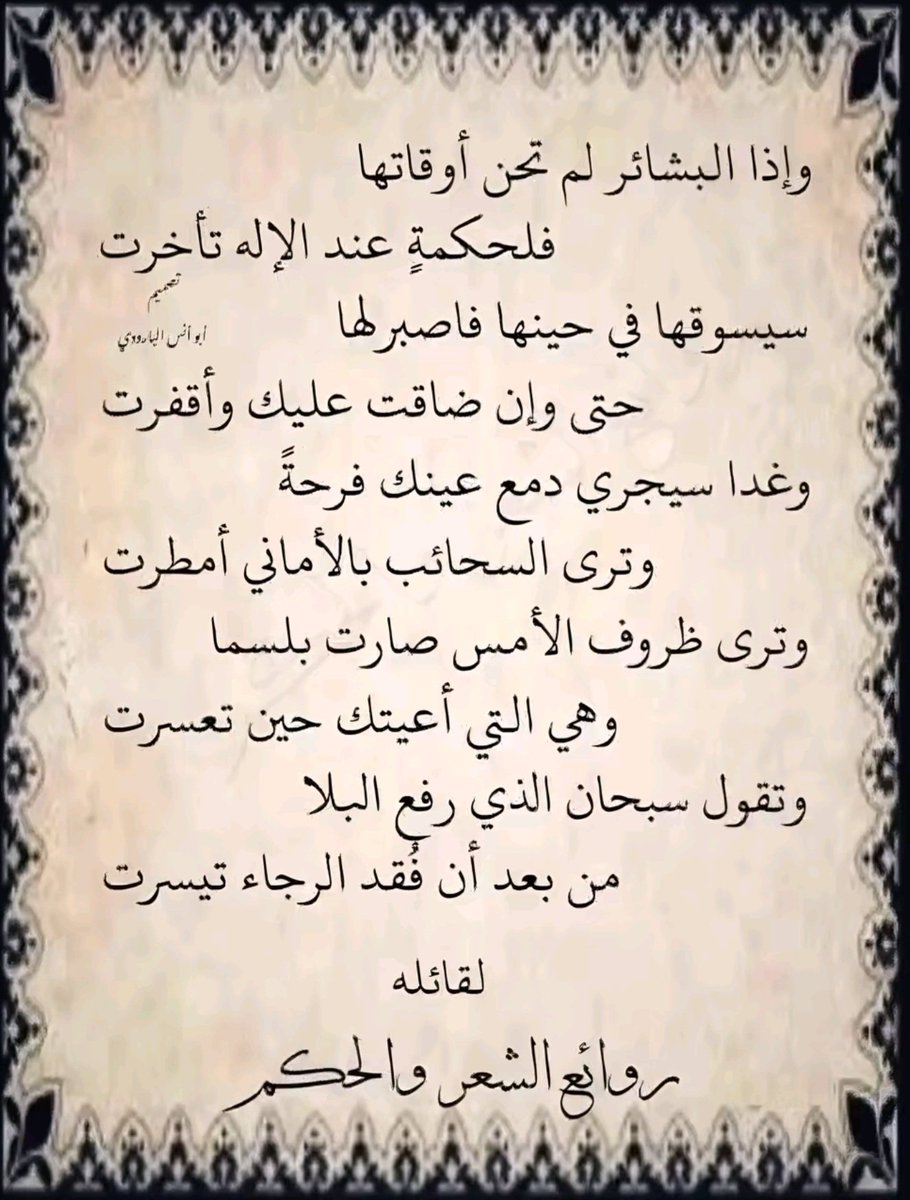 وإذا البشائر لم تحن أوقاتها
فلحكمةٍ عند الإله تأخرت
تصميم
أبو أنس البارودي
سيسوقها في حينها فاصبر لها
حتى وإن ضاقت عليك وأقفرت
وغدا سيجري دمع عينك فرحةً
وترى السحائب بالأماني أمطرت
وترى ظروف الأمس صارت بلسما
وهي التي أعيتك حين تعسرت
وتقول سبحان الذي رفع البلا
من بعد أن فُقد الرجاء تيسرت
لقائله
روائع الشعر والحكم